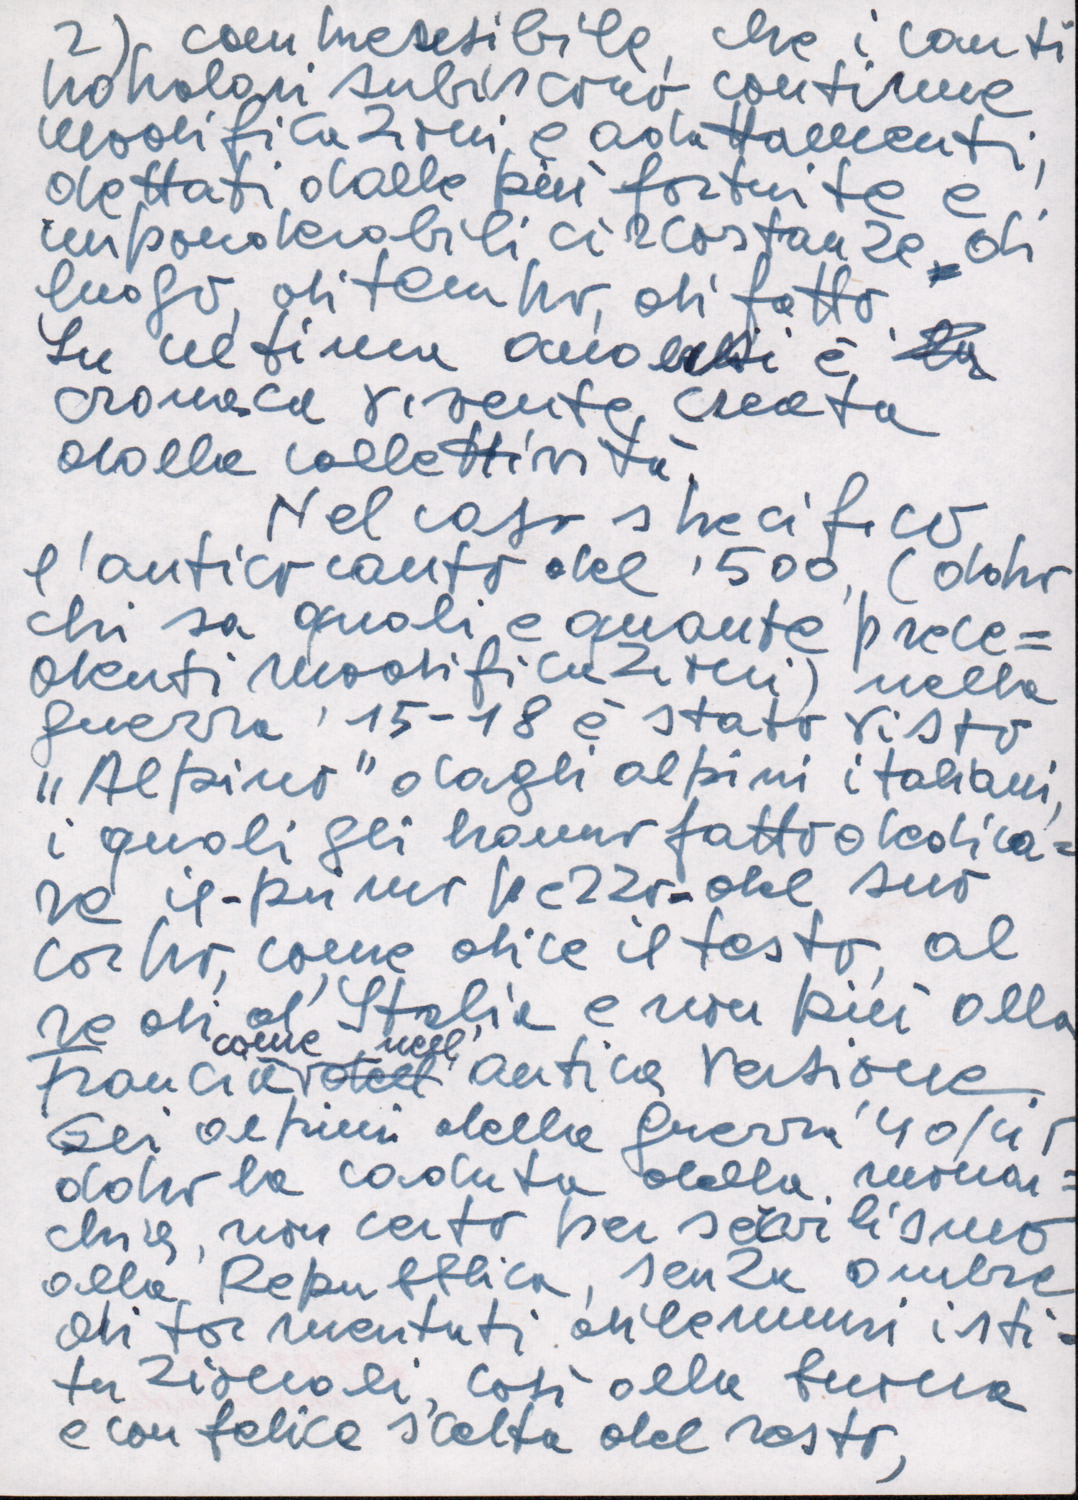 2) comprensibile, che i canti
popolari subiscono continue
modificazioni e adattamenti,
dettati dalle più fortuite e
imponderabili circostanze di
luogo, di tempo, di fatto.
In ultima analisi è la
cronaca vivente creata
dalla collettività.
Nel caso specifico
l'antico canto del '500, (dopo
chi sa quali e quante prece=
denti modificazioni) nella
guerra '15-18 è stato visto
"Alpino" dagli alpini italiani,
i quali gli hanno fatto dedica=
re il-primo pezzo-del suo
corpo, come dice il testo, al
re di d'Italia e non più alla
Francia come nell' antica versione.
Gli alpini della guerra '40/45
dopo la caduta della monar=
chia, non certo per servilismo
alla Repubblica, senza ombre
di tormentati dilemmi isti=
tuzionali, così alla buona
e con felice scelta del resto,